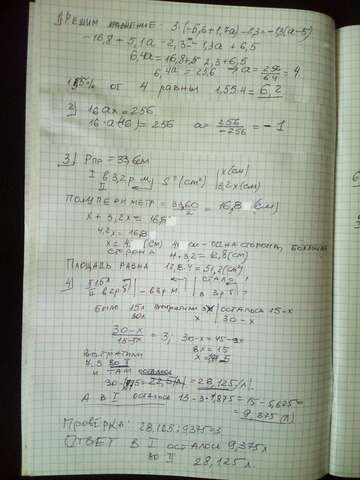 1) РЕШИМ уравнение: 3·(-5,6+1,7a)-2,3=-1,3(a-5)
-16,8+5,1a-2,3=-1,3a+6,5
6,4a=16,8+2,3+6,5
6,4a=25,6 → a=25,6/6,4=4
155% от 4 равны 1,55·4=6,2
2) 16ax=256
16·a·(-16)=256 a=256/-256=-1
3) Pпр=33,6см
I в 3,2 р. м S-? (см²) x(см)
II 3,2x(см)
ПОЛУПЕРИМЕТР=33,60/2=16,8(см)
x+3,2x=16,8
4,2x=16,8
x=4 (см) 4 см-ОДНА СТОРОНА, БОЛЬШАЯ
СТОРОНА 4·3,2=12,8(см)
ПЛОЩАДЬ РАВНА 12,8·4=51,2(см²)
4) I 15л СТАЛО
II в 2 р б в 3 р б
БЫЛО 15л x ОСТАЛОСЬ 15-
30л x 30-x
30-x = 3; 30-x=45-
8x=15
из II
и ТАМ осталось
28,125(л)
А В I осталось 15-3·1,875=15-5,625=
=9,375(л)
Проверка: 28,125:9,375=3
ОТВЕТ В I осталось 9,375л
во II 28,125л.